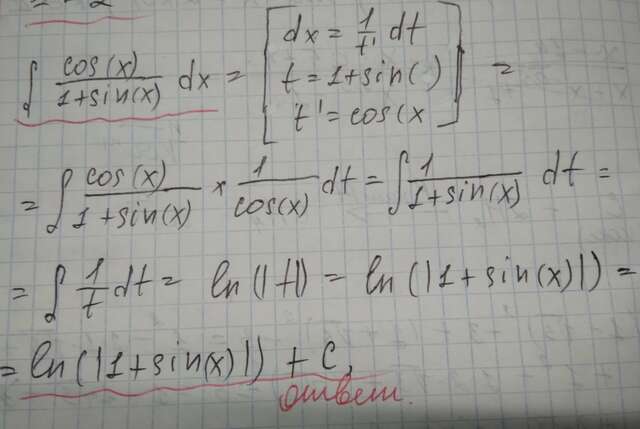 = -2
∫ cos(x)/(1+sin(x)) dx = [dx = 1/t' dt
t = 1+sin( )
t' = cos(x] =
= ∫ cos(x)/(1+sin(x)) × 1/cos(x) dt = ∫ 1/(1+sin(x)) dt =
= ∫ 1/t dt = ln(|t|) = ln(|1+sin(x)|) =
= ln(|1+sin(x)|) + C,
ответ.